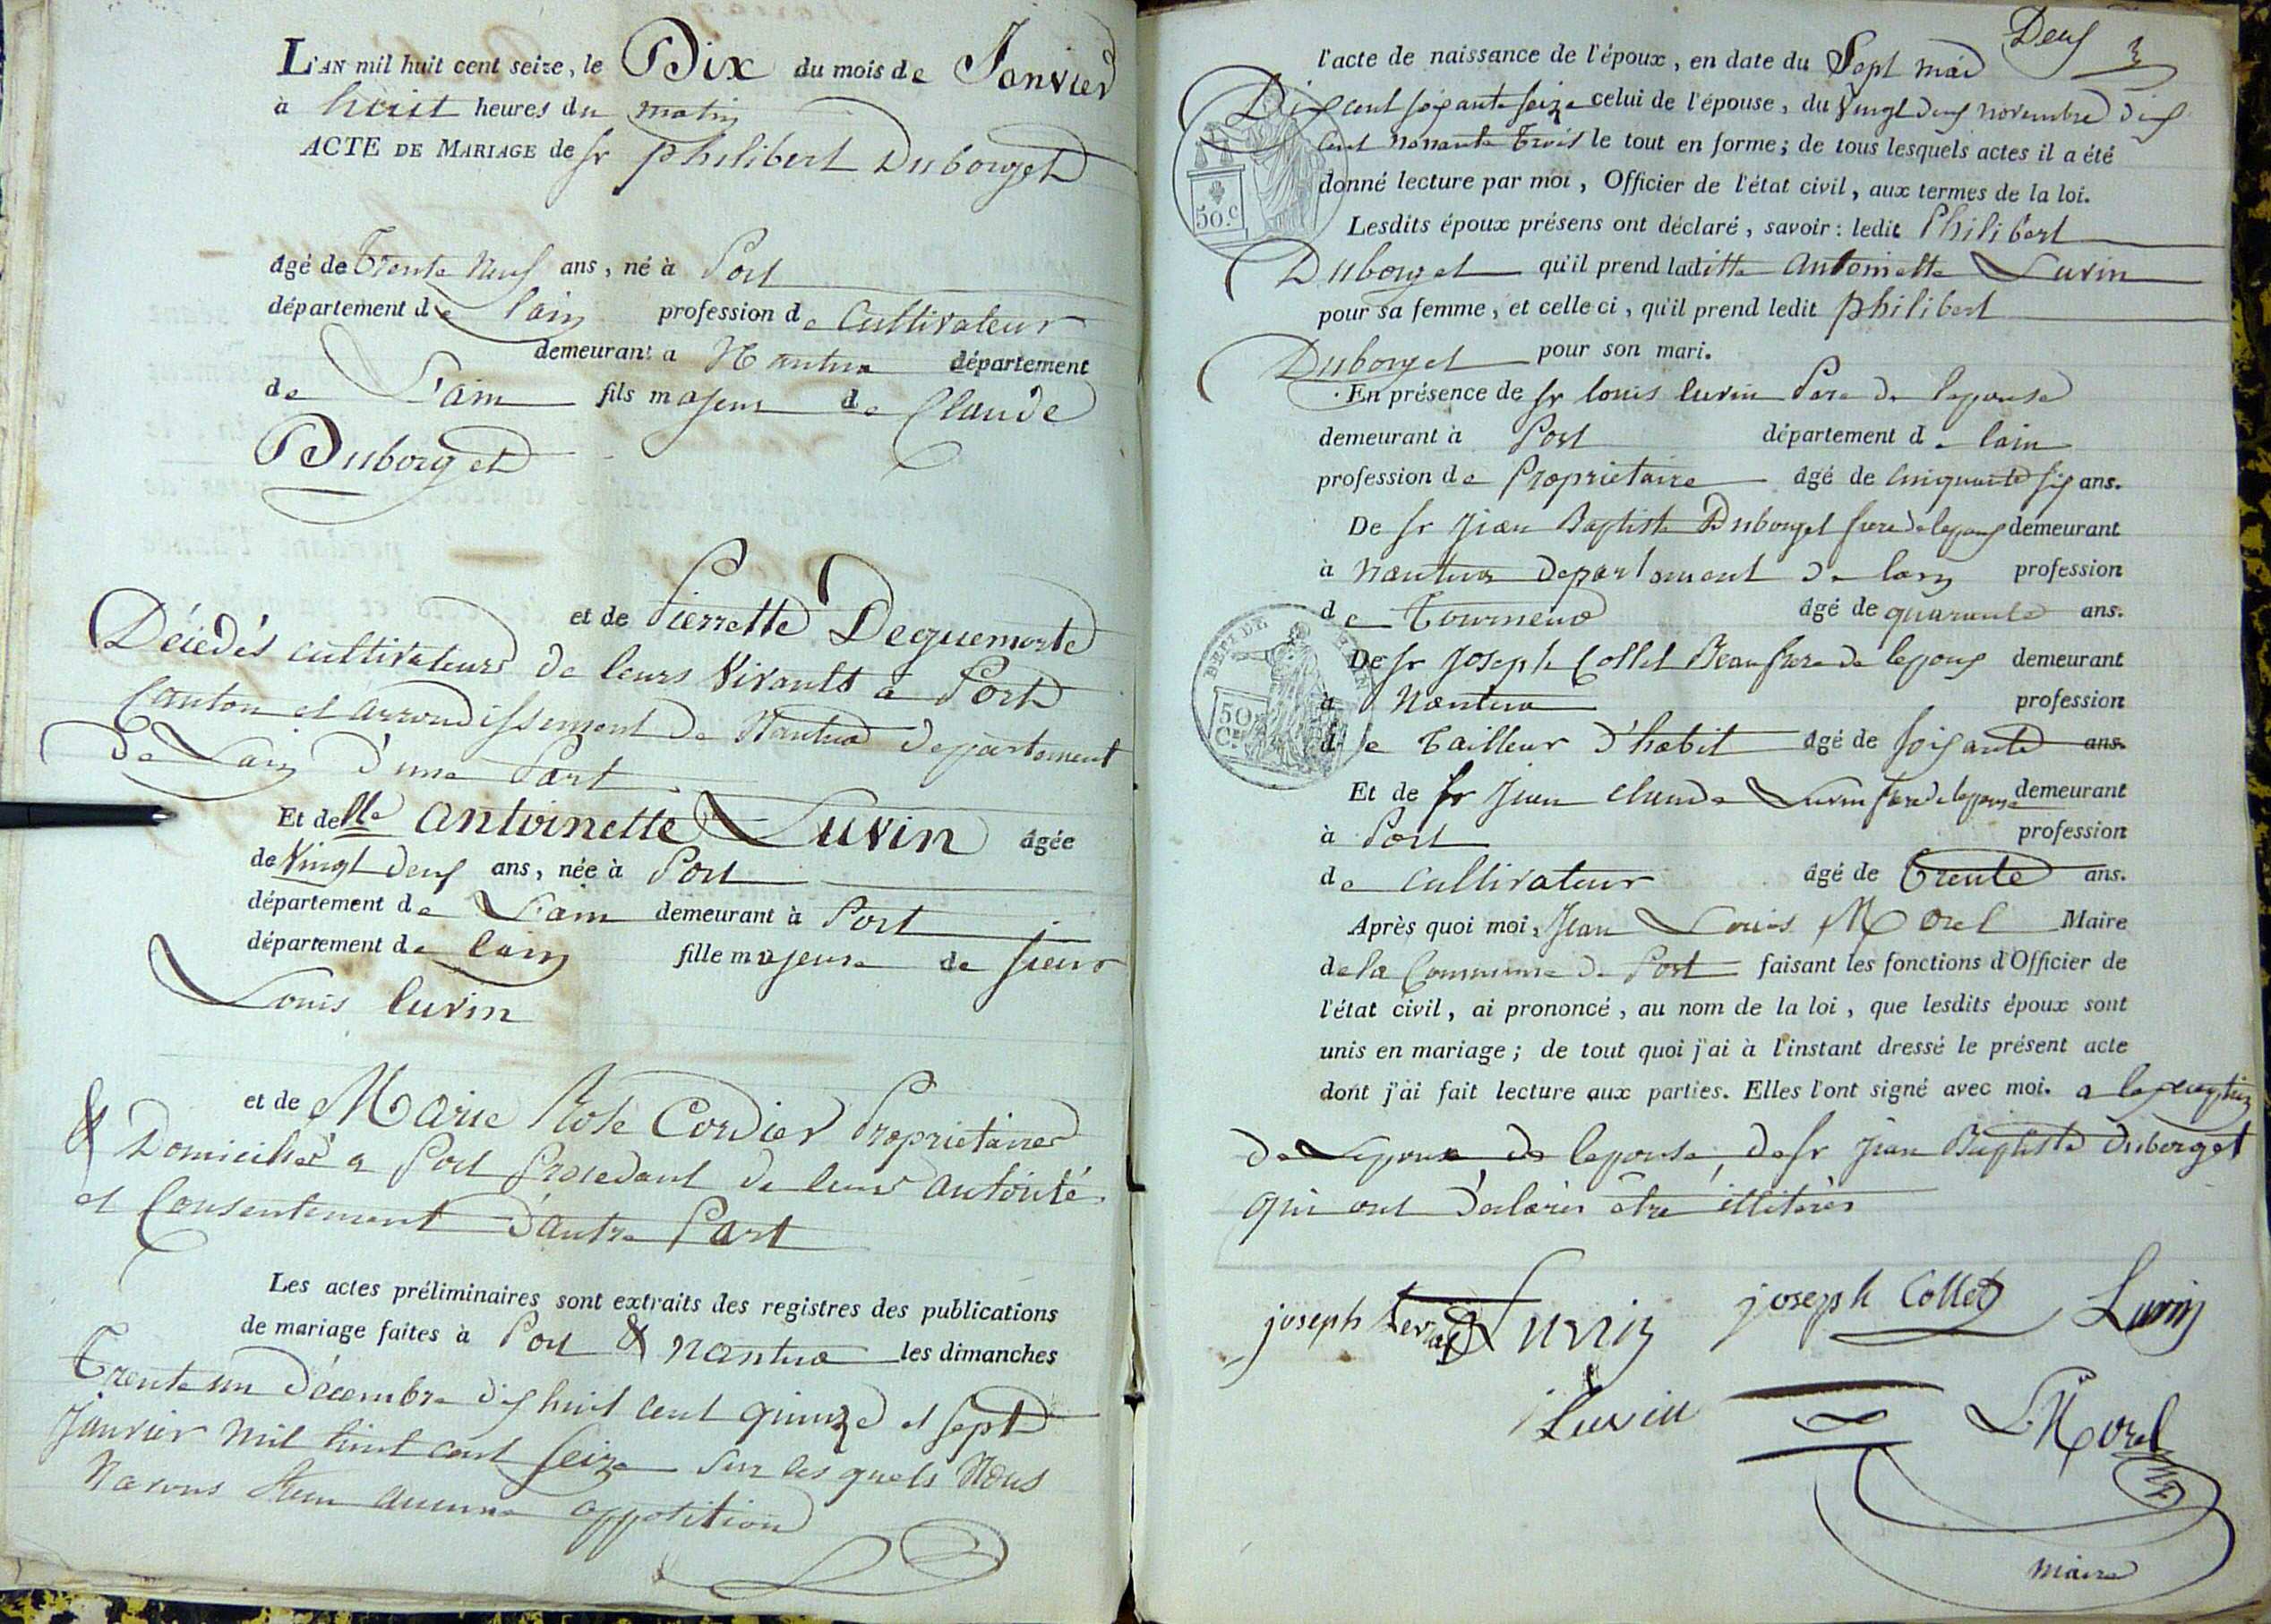 L'AN mil huit cent seize, le Dix du mois de Janvier
à huit heures du matin
ACTE DE MARIAGE de sr philibert Duborget
âgé de Trente Neuf ans, né à Port
département de lain profession de Cultivateur
demeurant a Nantua département
de L'ain fils majeur de Claude
Duborget
et de Pierrette Deguemorte
Décédés cultivateurs de leurs Vivants a Port
Canton et arrondissement de Nantua departement
De Lain d'une Part
Et de lle antoinette Luvin âgée
de Vingt deux ans, née à Port
département de L'ain demeurant à Port
département de lain fille majeure de sieur
Louis luvin
et de Marie Rose Cordier Proprietaires
& Domiciliés a Port Procedant de leur autorité
et Consentement D'autre Part
Les actes préliminaires sont extraits des registres des publications
de mariage faites à Port & nantua les dimanches
Trente un décembre dix huit cent quinze et sept
Janvier mil huit cent seize sur les quels Nous
Navons aucune opposition
Deux
l'acte de naissance de l'époux, en date du Sept
Dix cent soixante seize celui de l'épouse, du Vingt deux novembre dix
cent nonante trois le tout en forme; de tous lesquels actes il a été
donné lecture par moi, Officier de l'état civil, aux termes de la loi.
50.c
Lesdits époux présens ont déclaré, savoir: ledit Philibert
Duborget qu'il prend laditte antoinette Luvin
pour sa femme, et celle ci, qu'il prend ledit philibert
Duborget pour son mari.
En présence de sr louis luvin Pere de lepouse
demeurant à Port département de lain
profession de Proprietaire âgé de cinquante six ans.
De sr Jean Baptiste Duborget frere de lepoux demeurant
à Nantua departement de lain profession
de Tourneur âgé de quarante ans.
DEPT DE L'AIN
50 Ces
De sr Joseph Collet Beaufrere de lepoux demeurant
à Nantua profession
de Tailleur d'habit âgé de soixante ans.
Et de sr Jean claude Luvin frere de lepouse demeurant
à Port profession
de cultivateur âgé de Trente ans.
Après quoi moi, Jean Louis Morel Maire
de la Commune de Port faisant les fonctions d'Officier de
l'état civil, ai prononcé, au nom de la loi, que lesdits époux sont
unis en mariage; de tout quoi j'ai à l'instant dressé le présent acte
dont j'ai fait lecture aux parties. Elles l'ont signé avec moi. a lexception
de Lepoux de lepouse, de sr Jean Baptiste duborget
qui ont déclarés être illiterés
joseph Luvin joseph Collet Luvin
Luvin LMorel
maire